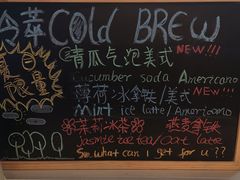 冷萃 Cold BREW
夏日限量
青瓜气泡美式 NEW!!!
Cucumber soda Americano
薄荷冰拿铁/美式 NEW!!!
Mint ice latte/Americano
茉莉冰茶 燕麦拿铁
Jasmine ice tea/Oat latte
So what can i get for u??